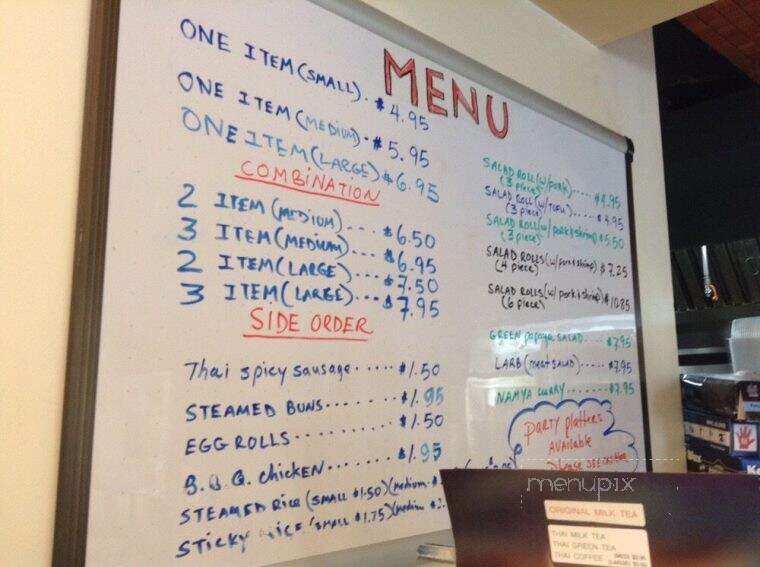 MENU
ONE ITEM (SMALL). $4.95
ONE ITEM (MEDIUM) - $5.95
ONE ITEM (LARGE) $6.95
COMBINATION
2 ITEM (MEDIUM) --- $6.50
3 ITEM (MEDIUM) --- $6.95
2 ITEM (LARGE) --- $7.50
3 ITEM (LARGE) --- $7.95
SIDE ORDER
Thai spicy sausage ..... $1.50
STEAMED BUNS ------- $1.95
EGG ROLLS ------- $1.50
B.B.Q. chicken ...... $1.95
STEAMED Rice (SMALL $1.50) (medium
STICKY RICE (SMALL $1.75) (medium $2.
SALAD ROLL (w/PORK) ---- $4.95
(3 piece)
SALAD ROLL (w/TOFU) --- $4.95
(3 piece)
SALAD ROLL (w/ pork & shrimp) $5.50
(3 piece)
SALAD ROLLS (w/ pork & shrimp) $7.25
(4 piece)
SALAD ROLLS (w/ pork & shrimp) $10.85
(6 piece)
GREEN papaya SALAD ---- $7.95
LARB (meat SALAD) ---- $7.95
NAMYA CURRY ---- $7.95
PARTY platters
AVAILABLE
please see
menupix
ORIGINAL MILK TEA
THAI MILK TEA
THAI GREEN TEA
THAI COFFEE